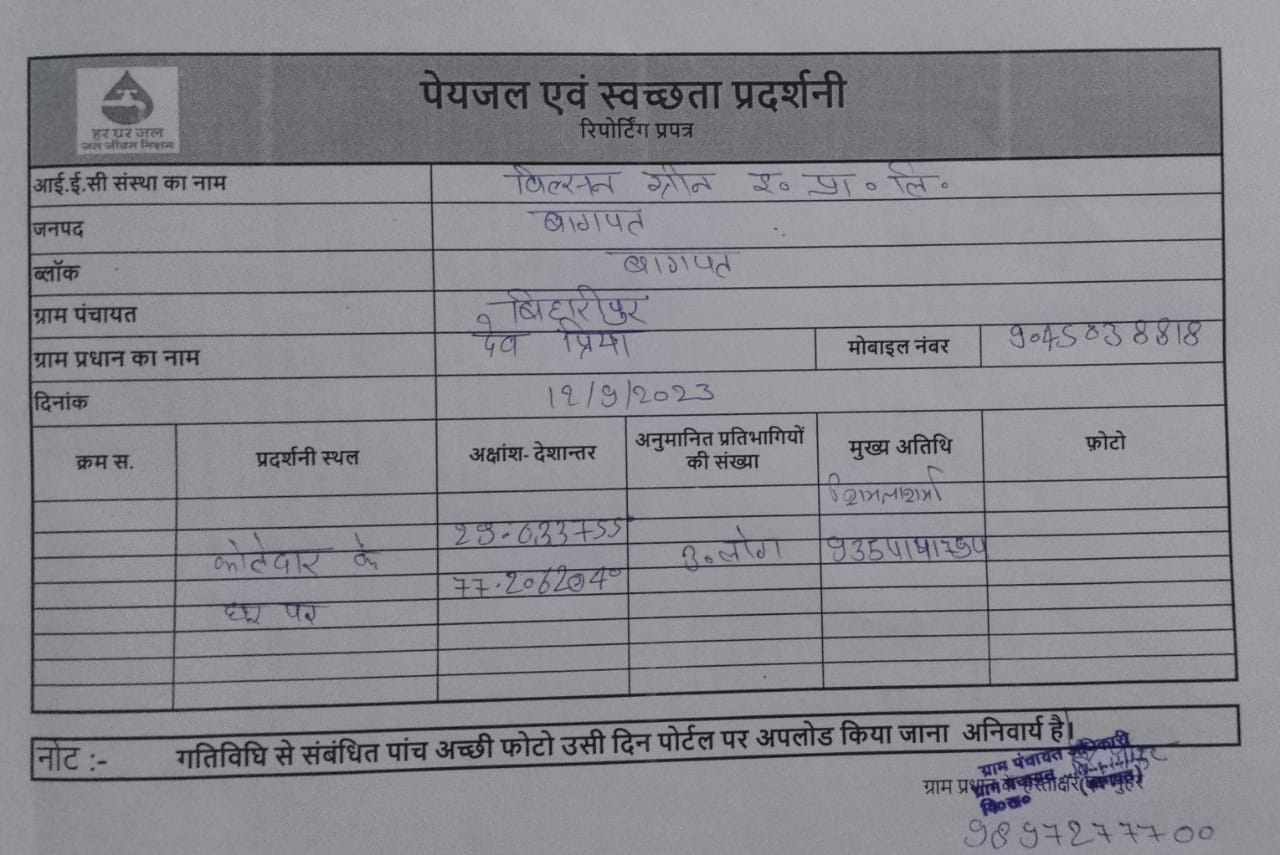 हर घर जल
जल जीवन मिशन
पेयजल एवं स्वच्छता प्रदर्शनी
रिपोर्टिंग प्रपत्र
आई.ई.सी संस्था का नाम विल्सन ग्रीन इ० प्रा० लि०
जनपद बागपत
ब्लॉक बागपत
ग्राम पंचायत बिहारीपुर
ग्राम प्रधान का नाम देव प्रिया मोबाइल नंबर 9045038818
दिनांक 12/9/2023
क्रम स. प्रदर्शनी स्थल अक्षांश- देशान्तर अनुमानित प्रतिभागियों की संख्या मुख्य अतिथि फ़ोटो
29.033755
कोटेदार के 30 लोग
77.206204०
घर पर
नोट :- गतिविधि से संबंधित पांच अच्छी फोटो उसी दिन पोर्टल पर अपलोड किया जाना अनिवार्य है।
ग्राम पंचायत अधिकारी
ग्राम पंचायत
वि०ख०
9897277700